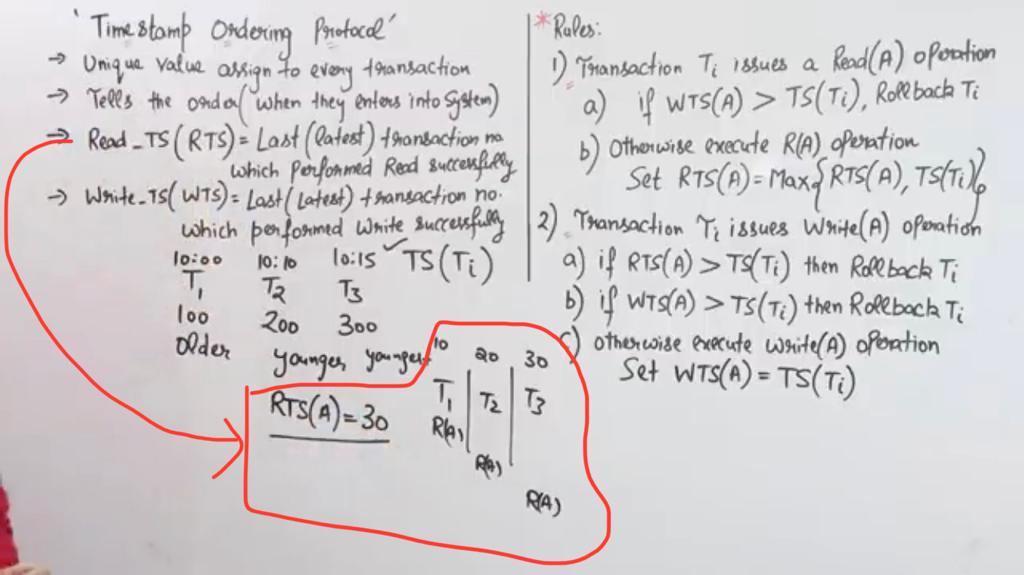 'Timestamp Ordering Protocol'
→ Unique value assign to every transaction
→ Tells the order (when they enters into System)
→ Read_TS (RTS) = Last (latest) transaction no.
which performed Read successfully
→ Write_TS (WTS) = Last (Latest) transaction no.
which performed Write successfully
10:00 10:10 10:15 ✓ TS(Ti)
T1 T2 T3
100 200 300
Older younger younger
RTS(A) = 30
10 20 30
T1 T2 T3
R(A)
R(A)
R(A)
* Rules:
1) Transaction Ti issues a Read(A) operation
a) if WTS(A) > TS(Ti), Rollback Ti
b) Otherwise execute R(A) operation
Set RTS(A) = Max{RTS(A), TS(Ti)}
2) Transaction Ti issues Write(A) operation
a) if RTS(A) > TS(Ti) then Rollback Ti
b) if WTS(A) > TS(Ti) then Rollback Ti
c) otherwise execute Write(A) operation
Set WTS(A) = TS(Ti)